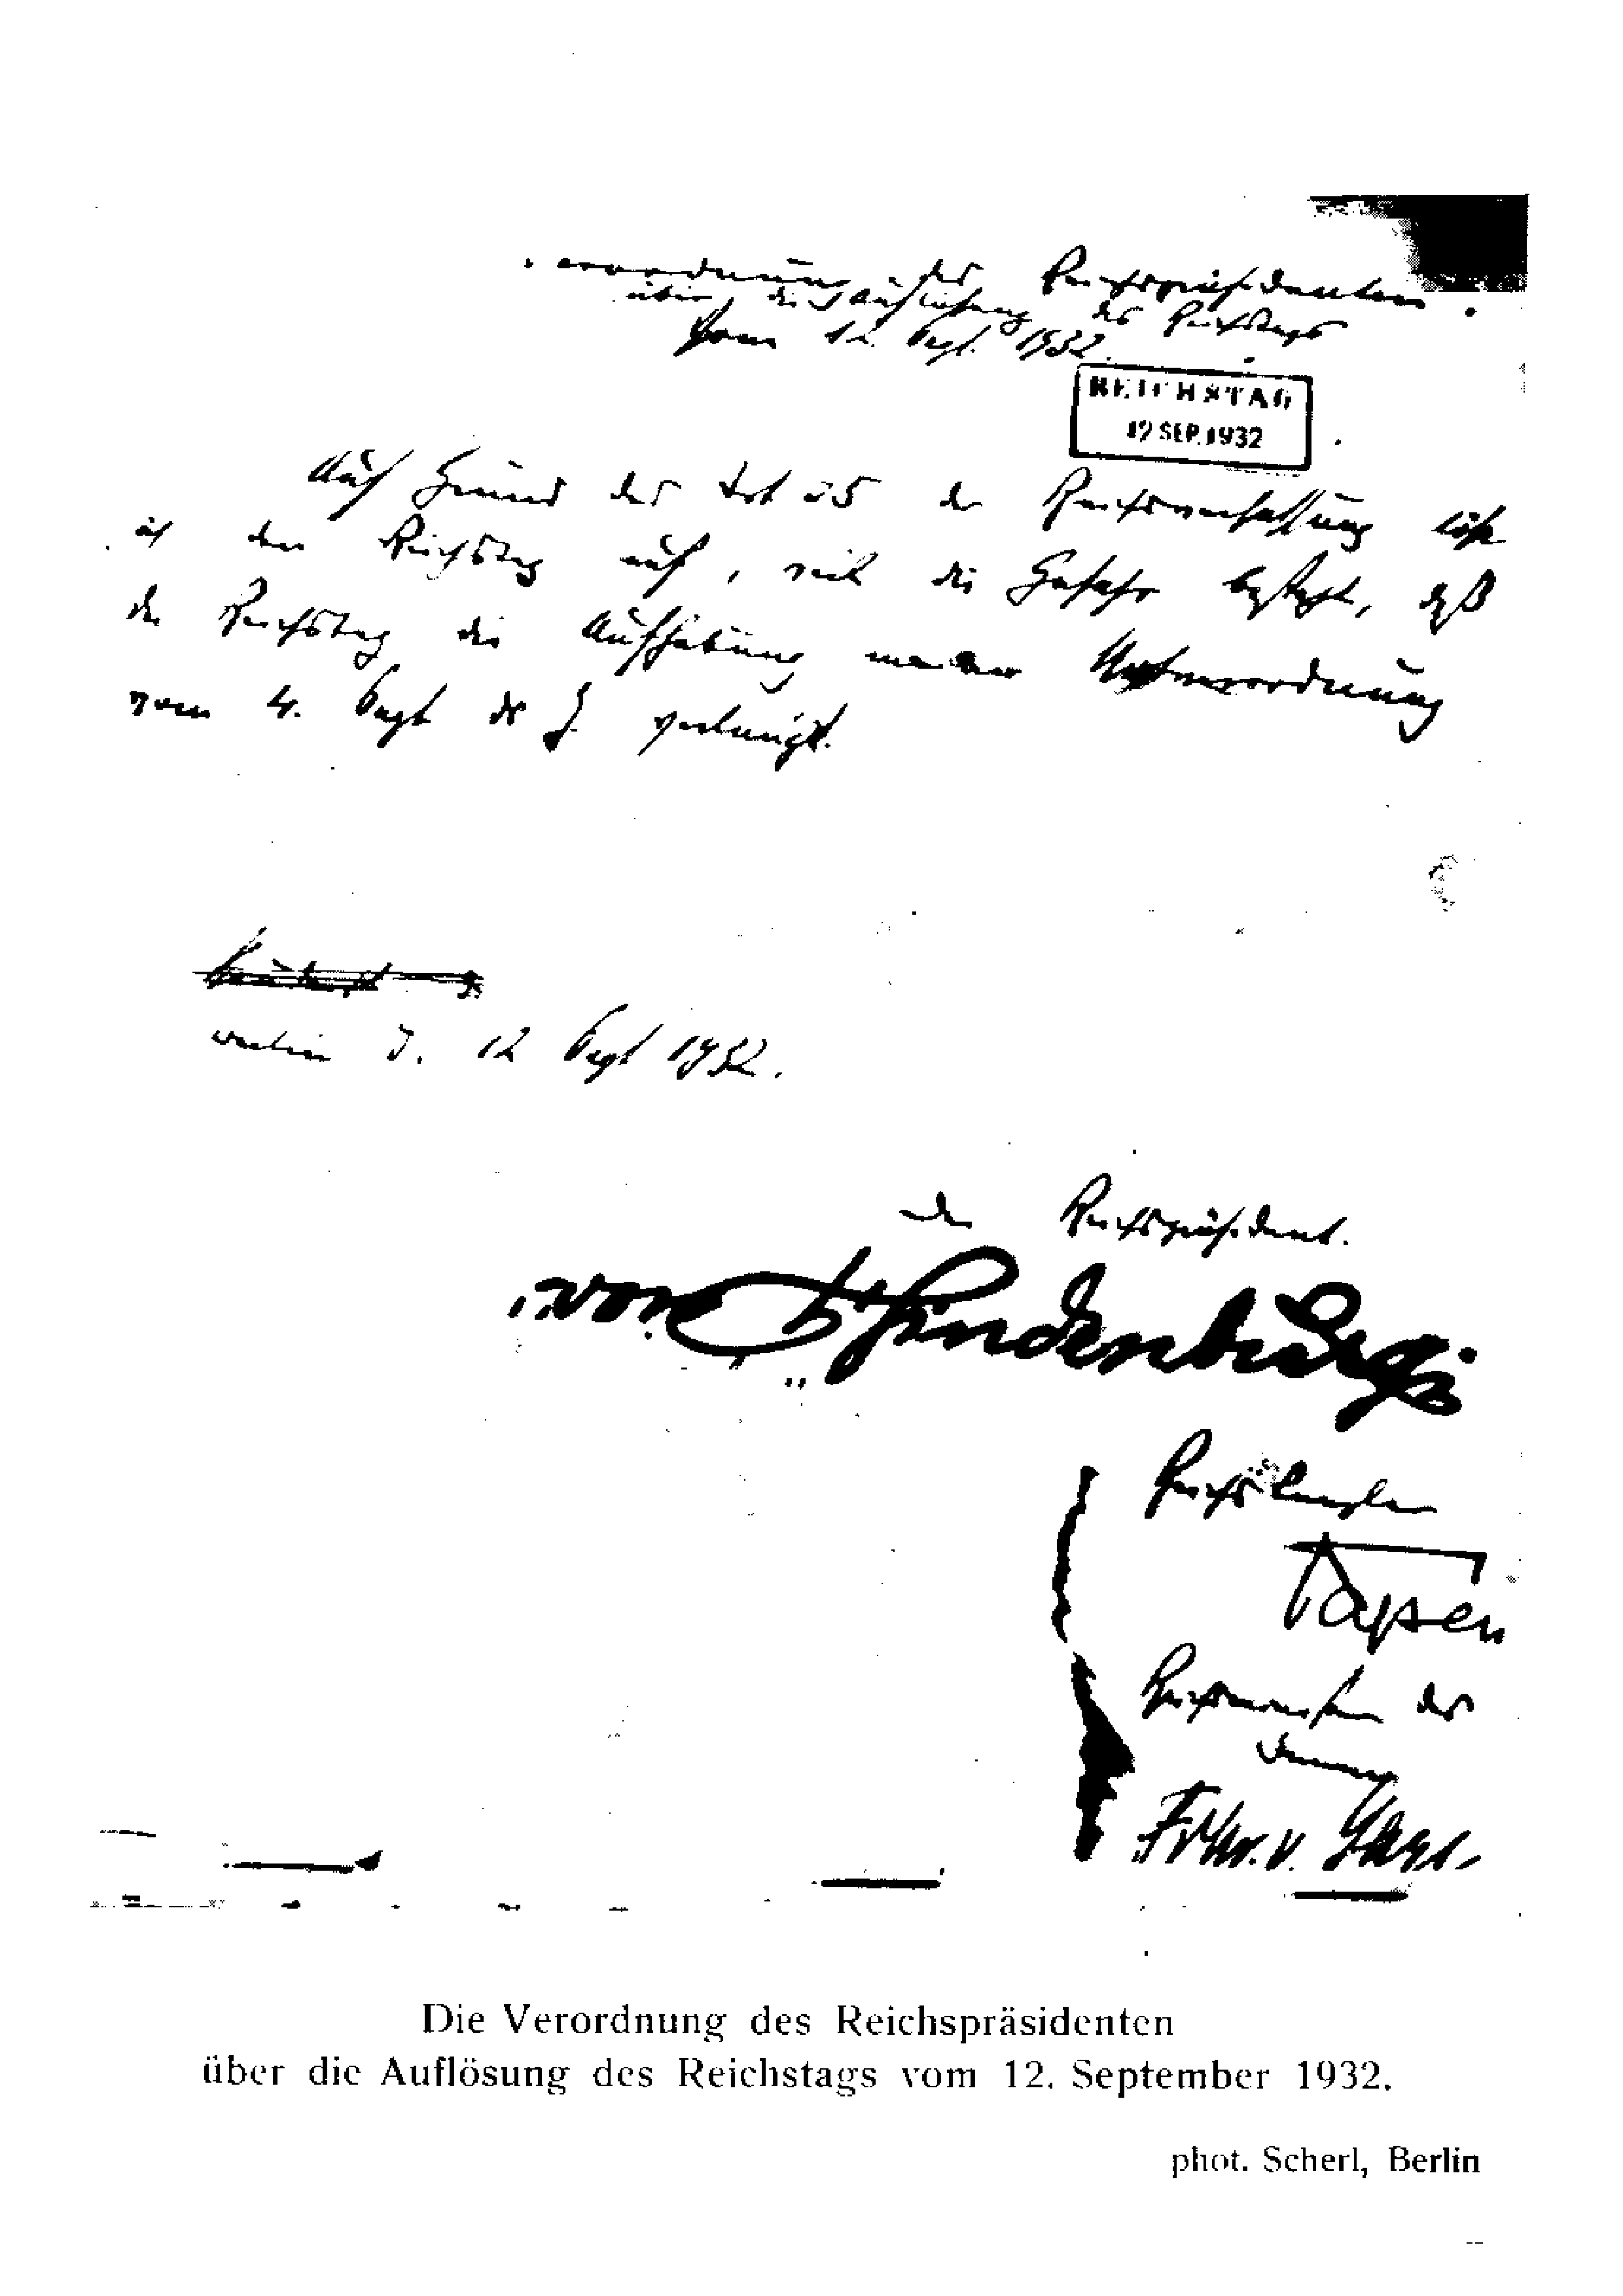 Verordnung des Reichspräsidenten
über die Auflösung des Reichstags
Vom 12. Sept. 1932.
REICHSTAG
12 SEP. 1932
Auf Grund des Art 25 der Reichsverfassung löse
ich den Reichstag auf, weil die Gefahr besteht, daß
der Reichstag die Aufhebung meiner Notverordnung
vom 4. Sept ds J. verlangt.
Berlin d. 12 Sept 1932.
Der Reichspräsident.
von Hindenburg
Reichskanzler
Papen
Reichsminister des
Innern
Frhr. v. Gayl.
Die Verordnung des Reichspräsidenten
über die Auflösung des Reichstags vom 12. September 1932.
phot. Scherl, Berlin